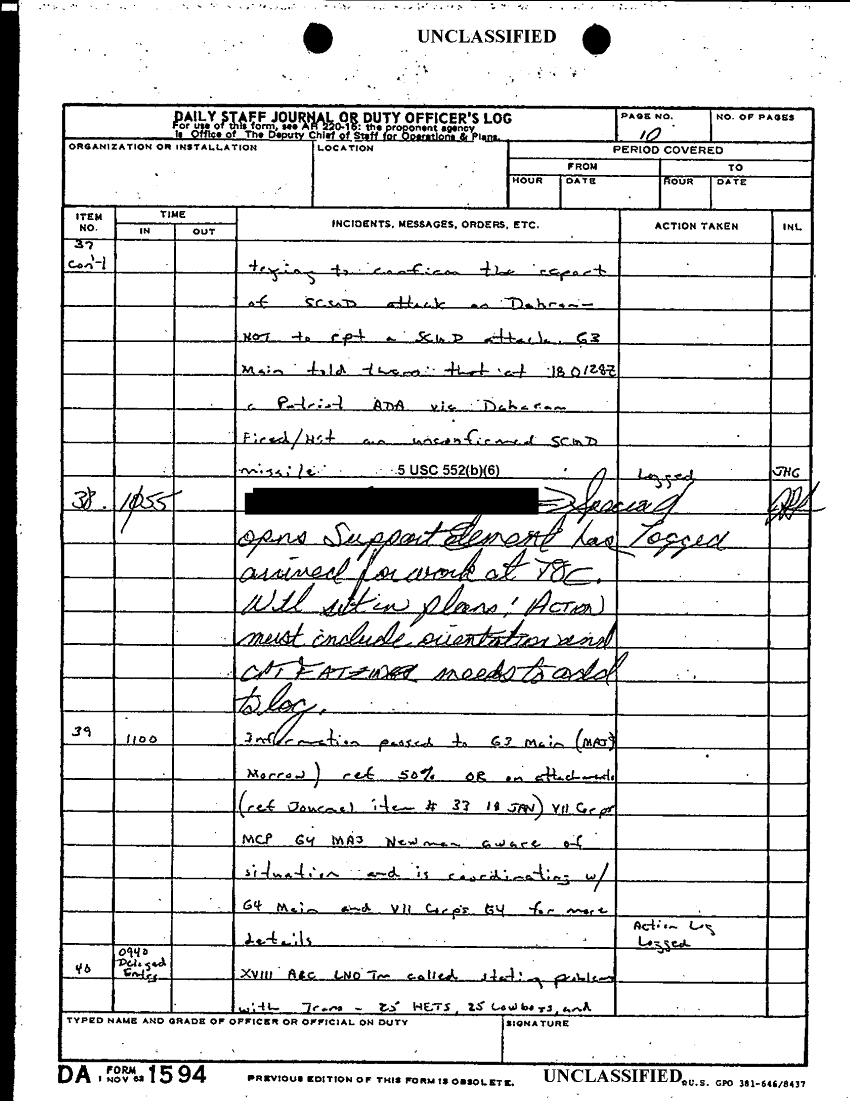 UNCLASSIFIED
DAILY STAFF JOURNAL OR DUTY OFFICER'S LOG
For use of this form, see AR 220-15; the proponent agency
is Office of The Deputy Chief of Staff for Operations & Plans.
PAGE NO.
10
NO. OF PAGES
ORGANIZATION OR INSTALLATION
LOCATION
PERIOD COVERED
FROM
TO
HOUR
DATE
HOUR
DATE
ITEM NO.
TIME
IN
OUT
INCIDENTS, MESSAGES, ORDERS, ETC.
ACTION TAKEN
INL
37
con't
trying to confirm the report
of SCUD attack on Dahran -
NOT to rpt a SCUD attack. G3
Main told them that at 180128Z
a Patriot ADA vic Daharan
Fired/Hit an unconfirmed SCUD
missile
5 USC 552(b)(6)
Logged
JHG
38. 1055
Special
opns Support Element has Logged
arrived for work at TOC.
Will sit in plans! (ACTION)
must include orientation and
needs to add
to log.
39
1100
Information passed to G3 Main (MAJ
Morrow) ref 50% OR on attachments
(ref Journal item # 33 18 JAN) VII Corps
MCP G4 MAJ Newman aware of
situation and is coordinating w/
G4 Main and VII Corps G4 for more
details
Action Log
Logged
40
0940
Delayed
Entry
XVIII ABC LNO Tm called stating problem
with Trans - 25 HETS, 25 Lowboys, and
TYPED NAME AND GRADE OF OFFICER OR OFFICIAL ON DUTY
SIGNATURE
DA FORM 1 NOV 62 1594
PREVIOUS EDITION OF THIS FORM IS OBSOLETE.
UNCLASSIFIED
U.S. GPO 381-646/8437